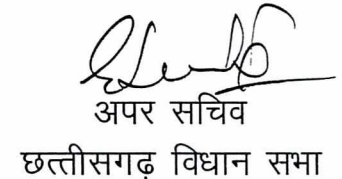 अपर सचिव
छत्तीसगढ़ विधान सभा